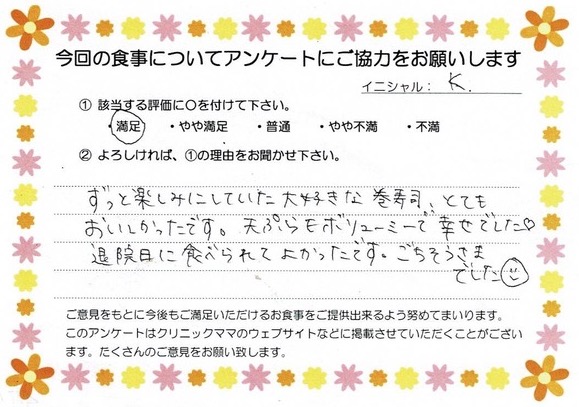 今回の食事についてアンケートにご協力をお願いします
イニシャル： K.
① 該当する評価に○を付けて下さい。
・満足 ・やや満足 ・普通 ・やや不満 ・不満
② よろしければ、①の理由をお聞かせ下さい。
ずっと楽しみにしていた大好きな巻寿司、とても
おいしかったです。天ぷらもボリューミーで幸せでした♡
退院日に食べられてよかったです。ごちそうさま
でした☺
ご意見をもとに今後もご満足いただけるお食事をご提供出来るよう努めてまいります。
このアンケートはクリニックママのウェブサイトなどに掲載させていただくことがござい
ます。たくさんのご意見をお願い致します。